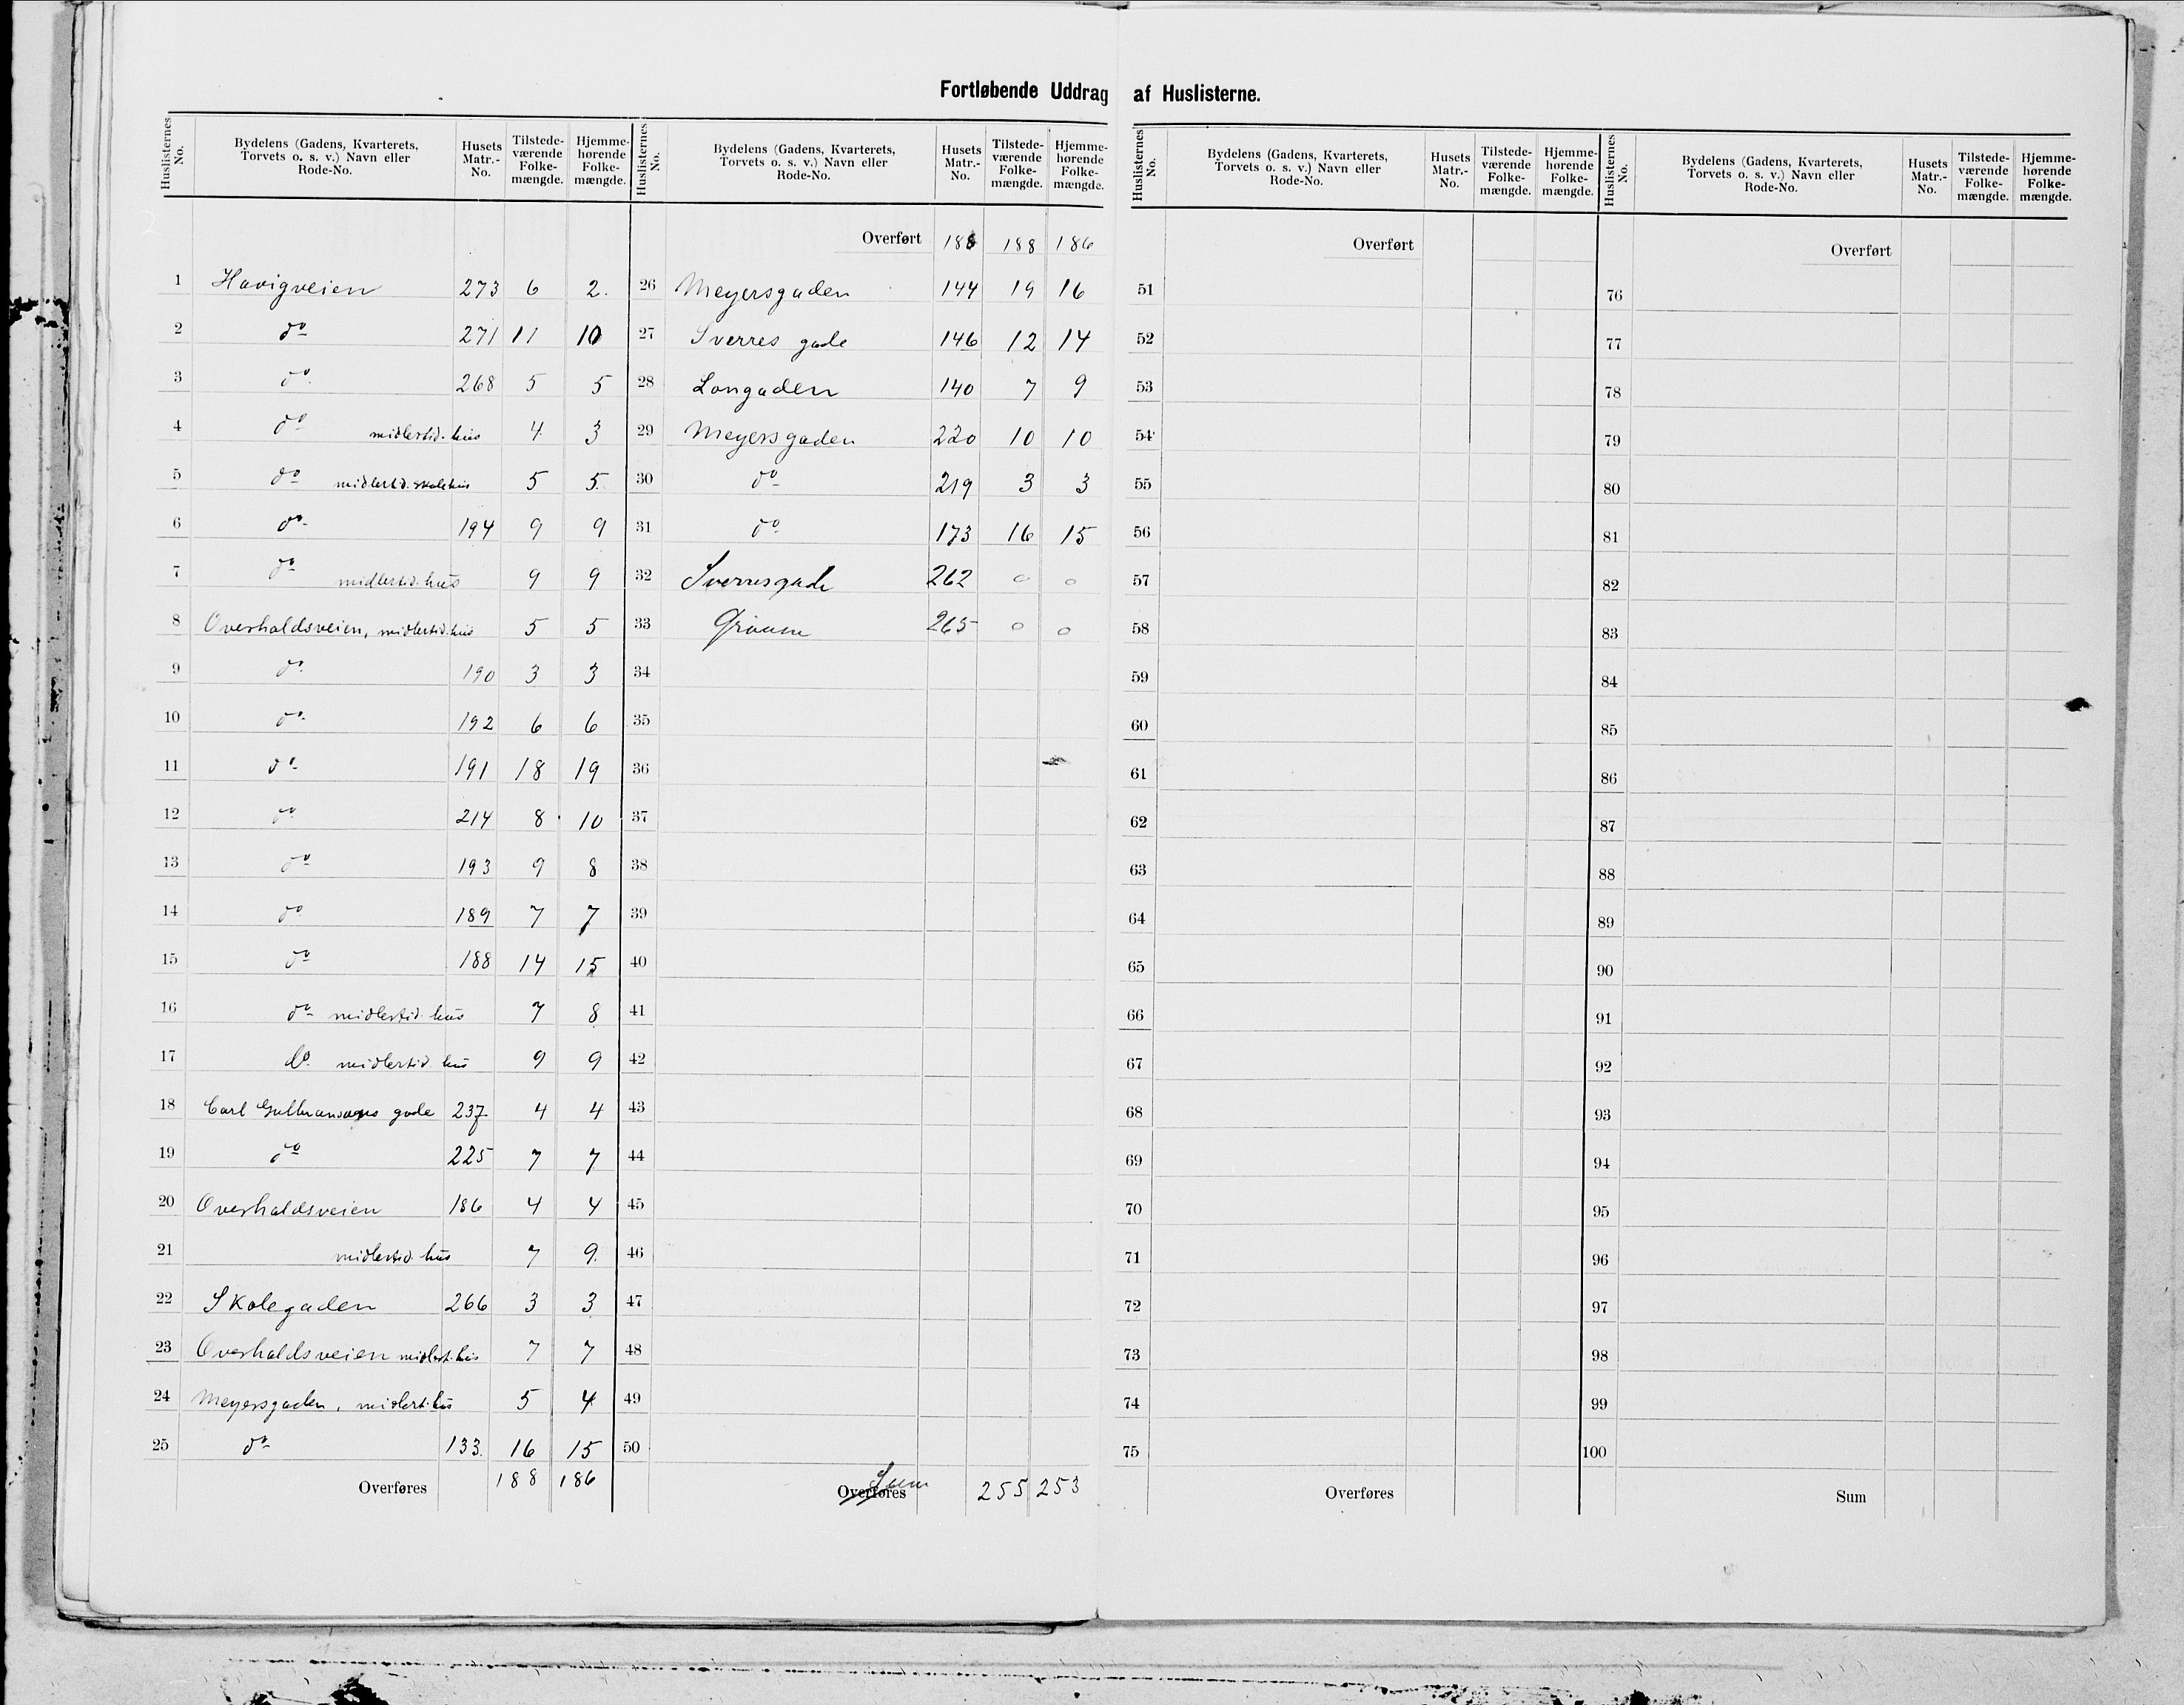 Fortløbende Uddrag af Huslisterne.
Huslisternes No. Bydelens (Gadens, Kvarterets, Torvets o. s. v.) Navn eller Rode-No. Husets Matr.-No. Tilstedeværende Folkemængde. Hjemmehørende Folkemængde.
1 Havigveien 273 6 2.
2 do 271 11 10
3 do. 268 5 5
4 do midlertid. hus 4. 3
5 do midlertid. skolehus 5 5.
6 do. 194 9 9
7 do midlertid. hus 9 9
8 Overhaldsveien, midlertid. hus 5 5
9 do. 190 3 3
10 do. 192 6 6
11 do. 191 18 19
12 do 214 8 10
13 do 193 9 8
14 do 189 7 7
15 do 188 14 15
16 do midlertid. hus 7 8
17 do. midlertid. hus 9 9
18 Carl Gulbransons gade 237 4 4
19 do 225 7 7
20 Overhaldsveien 186 4 4
21 midlertid. hus 7 9.
22 Skolegaden 266 3 3
23 Overhaldsveien midlert. hus 7 7
24 Meyersgaden, midlert. hus 5 4
25 do 133. 16 15
Overføres 188 186
Huslisternes No. Bydelens (Gadens, Kvarterets, Torvets o. s. v.) Navn eller Rode-No. Husets Matr.-No. Tilstedeværende Folkemængde. Hjemmehørende Folkemængde.
Overført 188 188 186
26 Meyersgaden 144 19 16
27 Sverres gade 146 12 14
28 Longaden 140 7 9
29 Meyersgaden 220 10 10
30 do 219 3 3
31 do 173 16 15
32 Sverresgade 262 0 0
33 265 0 0
34
35
36
37
38
39
40
41
42
43
44
45
46
47
48
49
50
Overføres Sum 255 253
Huslisternes No. Bydelens (Gadens, Kvarterets, Torvets o. s. v.) Navn eller Rode-No. Husets Matr.-No. Tilstedeværende Folkemængde. Hjemmehørende Folkemængde.
Overført
51
52
53
54
55
56
57
58
59
60
61
62
63
64
65
66
67
68
69
70
71
72
73
74
75
Overføres
Huslisternes No. Bydelens (Gadens, Kvarterets, Torvets o. s. v.) Navn eller Rode-No. Husets Matr.-No. Tilstedeværende Folkemængde. Hjemmehørende Folkemængde.
Overført
76
77
78
79
80
81
82
83
84
85
86
87
88
89
90
91
92
93
94
95
96
97
98
99
100
Sum